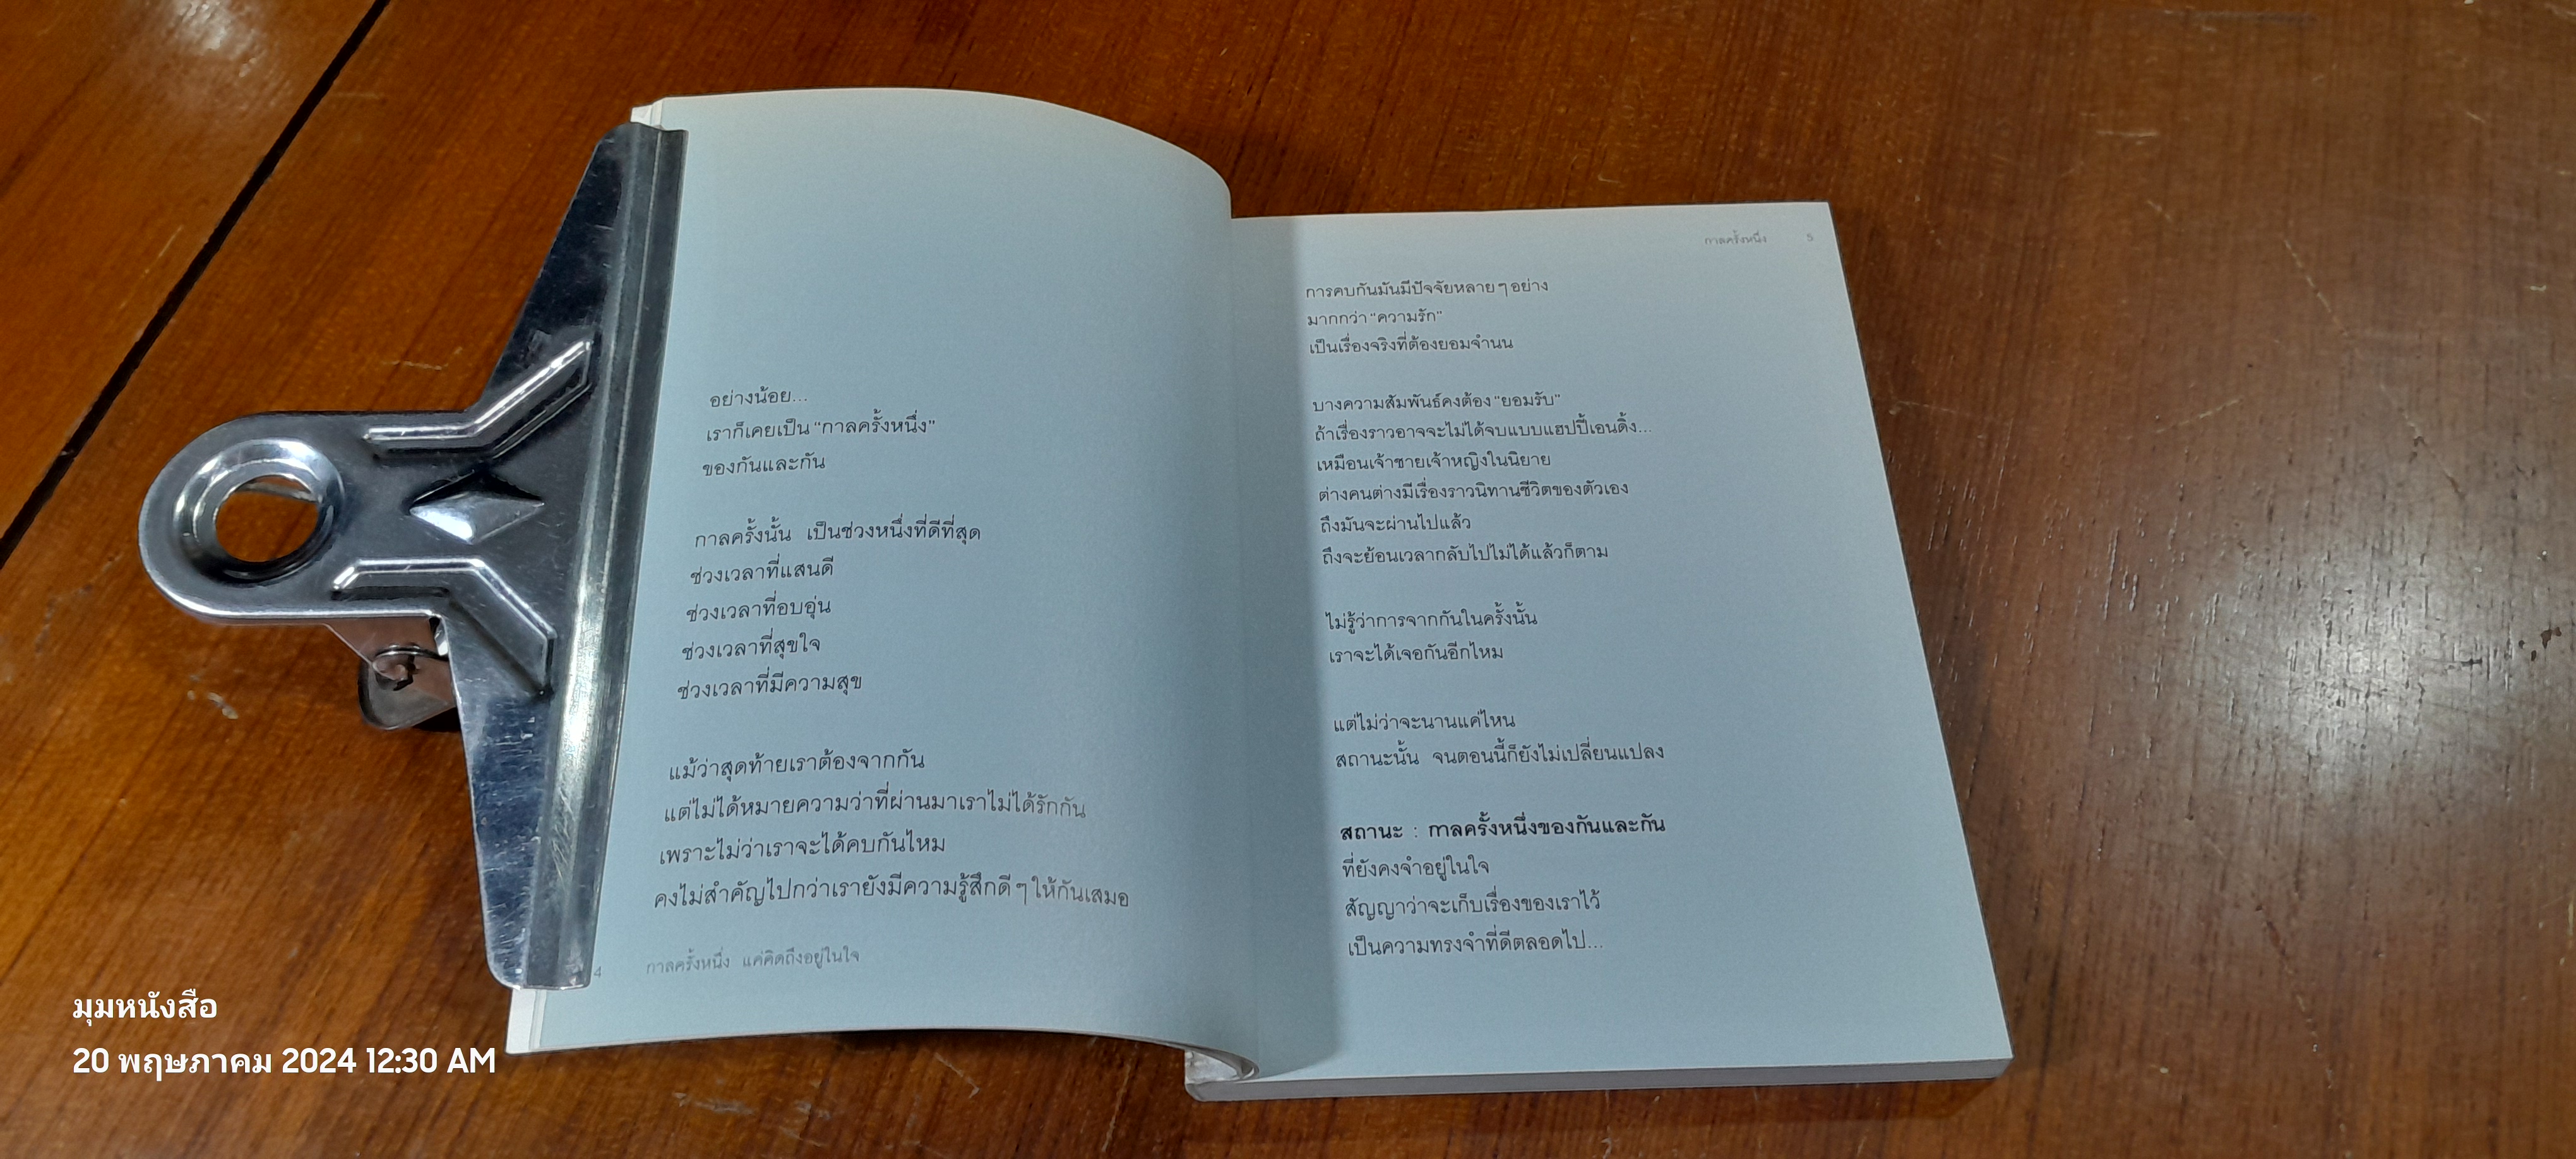 อย่างน้อย...
เราก็เคยเป็น “กาลครั้งหนึ่ง”
ของกันและกัน
กาลครั้งนั้น เป็นช่วงหนึ่งที่ดีที่สุด
ช่วงเวลาที่แสนดี
ช่วงเวลาที่อบอุ่น
ช่วงเวลาที่สุขใจ
ช่วงเวลาที่มีความสุข
แม้ว่าสุดท้ายเราต้องจากกัน
แต่ไม่ได้หมายความว่าที่ผ่านมาเราไม่ได้รักกัน
เพราะไม่ว่าเราจะได้คบกันไหม
คงไม่สำคัญไปกว่าเรายังมีความรู้สึกดี ๆ ให้กันเสมอ
4 กาลครั้งหนึ่ง แค่คิดถึงอยู่ในใจ
กาลครั้งหนึ่ง 5
การคบกันมันมีปัจจัยหลาย ๆ อย่าง
มากกว่า “ความรัก”
เป็นเรื่องจริงที่ต้องยอมจำนน
บางความสัมพันธ์คงต้อง “ยอมรับ”
ถ้าเรื่องราวอาจจะไม่ได้จบแบบแฮปปี้เอนดิ้ง...
เหมือนเจ้าชายเจ้าหญิงในนิยาย
ต่างคนต่างมีเรื่องราวนิทานชีวิตของตัวเอง
ถึงมันจะผ่านไปแล้ว
ถึงจะย้อนเวลากลับไปไม่ได้แล้วก็ตาม
ไม่รู้ว่าการจากกันในครั้งนั้น
เราจะได้เจอกันอีกไหม
แต่ไม่ว่าจะนานแค่ไหน
สถานะนั้น จนตอนนี้ก็ยังไม่เปลี่ยนแปลง
สถานะ : กาลครั้งหนึ่งของกันและกัน
ที่ยังคงจำอยู่ในใจ
สัญญาว่าจะเก็บเรื่องของเราไว้
เป็นความทรงจำที่ดีตลอดไป...
มุมหนังสือ
20 พฤษภาคม 2024 12:30 AM